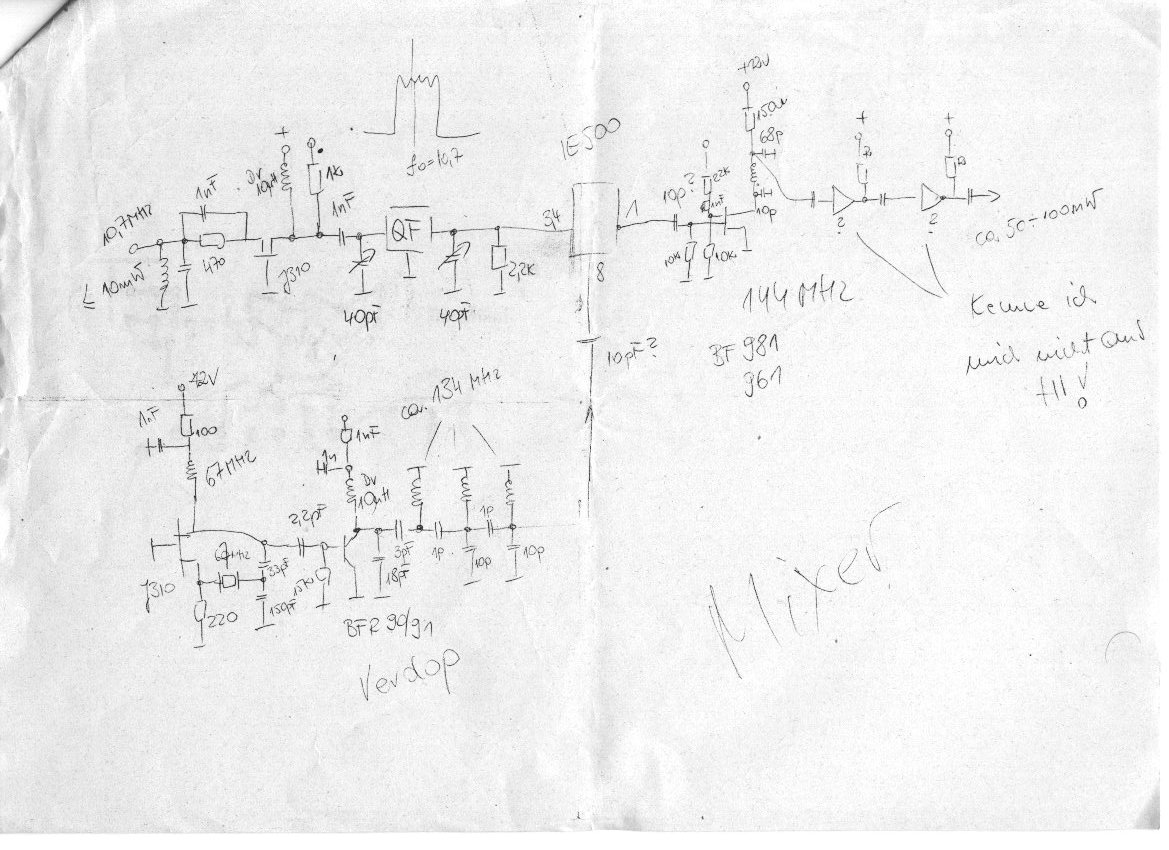 f₀=10,7
IE500
+12V
150Ω
68p
+
+
+
Dr
10µH
1k
1nF
1nF
10,7MHz
≤ 10mW
470
J310
40pF
QF
40pF
2,2K
3,4
1
8
10p?
22K
1nF
10p
10K
10K
?
?
ca. 50-100mW
144 MHz
BF 981
961
Kenne ich
mich nicht aus
!!!
10pF?
ca. 134 MHz
12V
1nF
100
67MHz
1nF
1n
Dr
10µH
2,2pF
J310
67MHz
33pF
150pF
220
15K
18pF
3pF
1p
1p
10p
10p
BFR 90/91
Verdop
Mixer